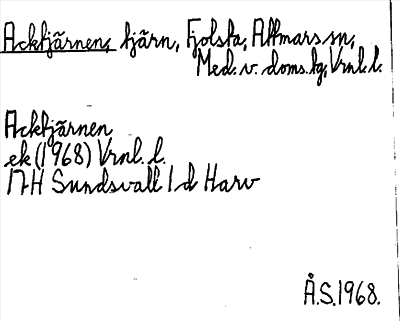 Acktjärnen, tjärn, Fjolsta, Attmars sn,
Med. v. doms.tg, Vrnl. l.
Acktjärnen
ek (1968) Vrnl. l.
17H Sundsvall 1 d Harv
Å.S. 1968.